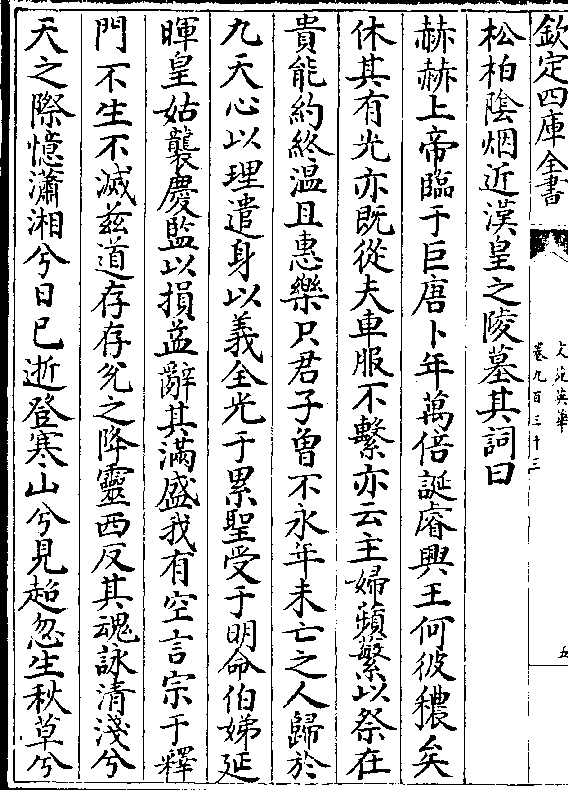 欽定四庫全書
文苑英華
卷九百三十三
五
松柏陰烟近漢皇之陵墓其詞曰
赫赫上帝臨于巨唐卜年萬倍誕睿興王何彼穠矣
休其有光亦既從夫車服不繫亦云主婦蘋蘩以祭在
貴能約終溫且惠樂只君子曾不永年未亡之人歸於
九天心以理遣身以義全光于累聖受于明命伯娣延
暉皇姑襲慶監以損益辭其滿盛我有空言宗于釋
門不生不滅兹道存存兊之降靈西反其魂詠清淺兮
天之際憶瀟湘兮日已逝登寒山兮見超忽生秋草兮